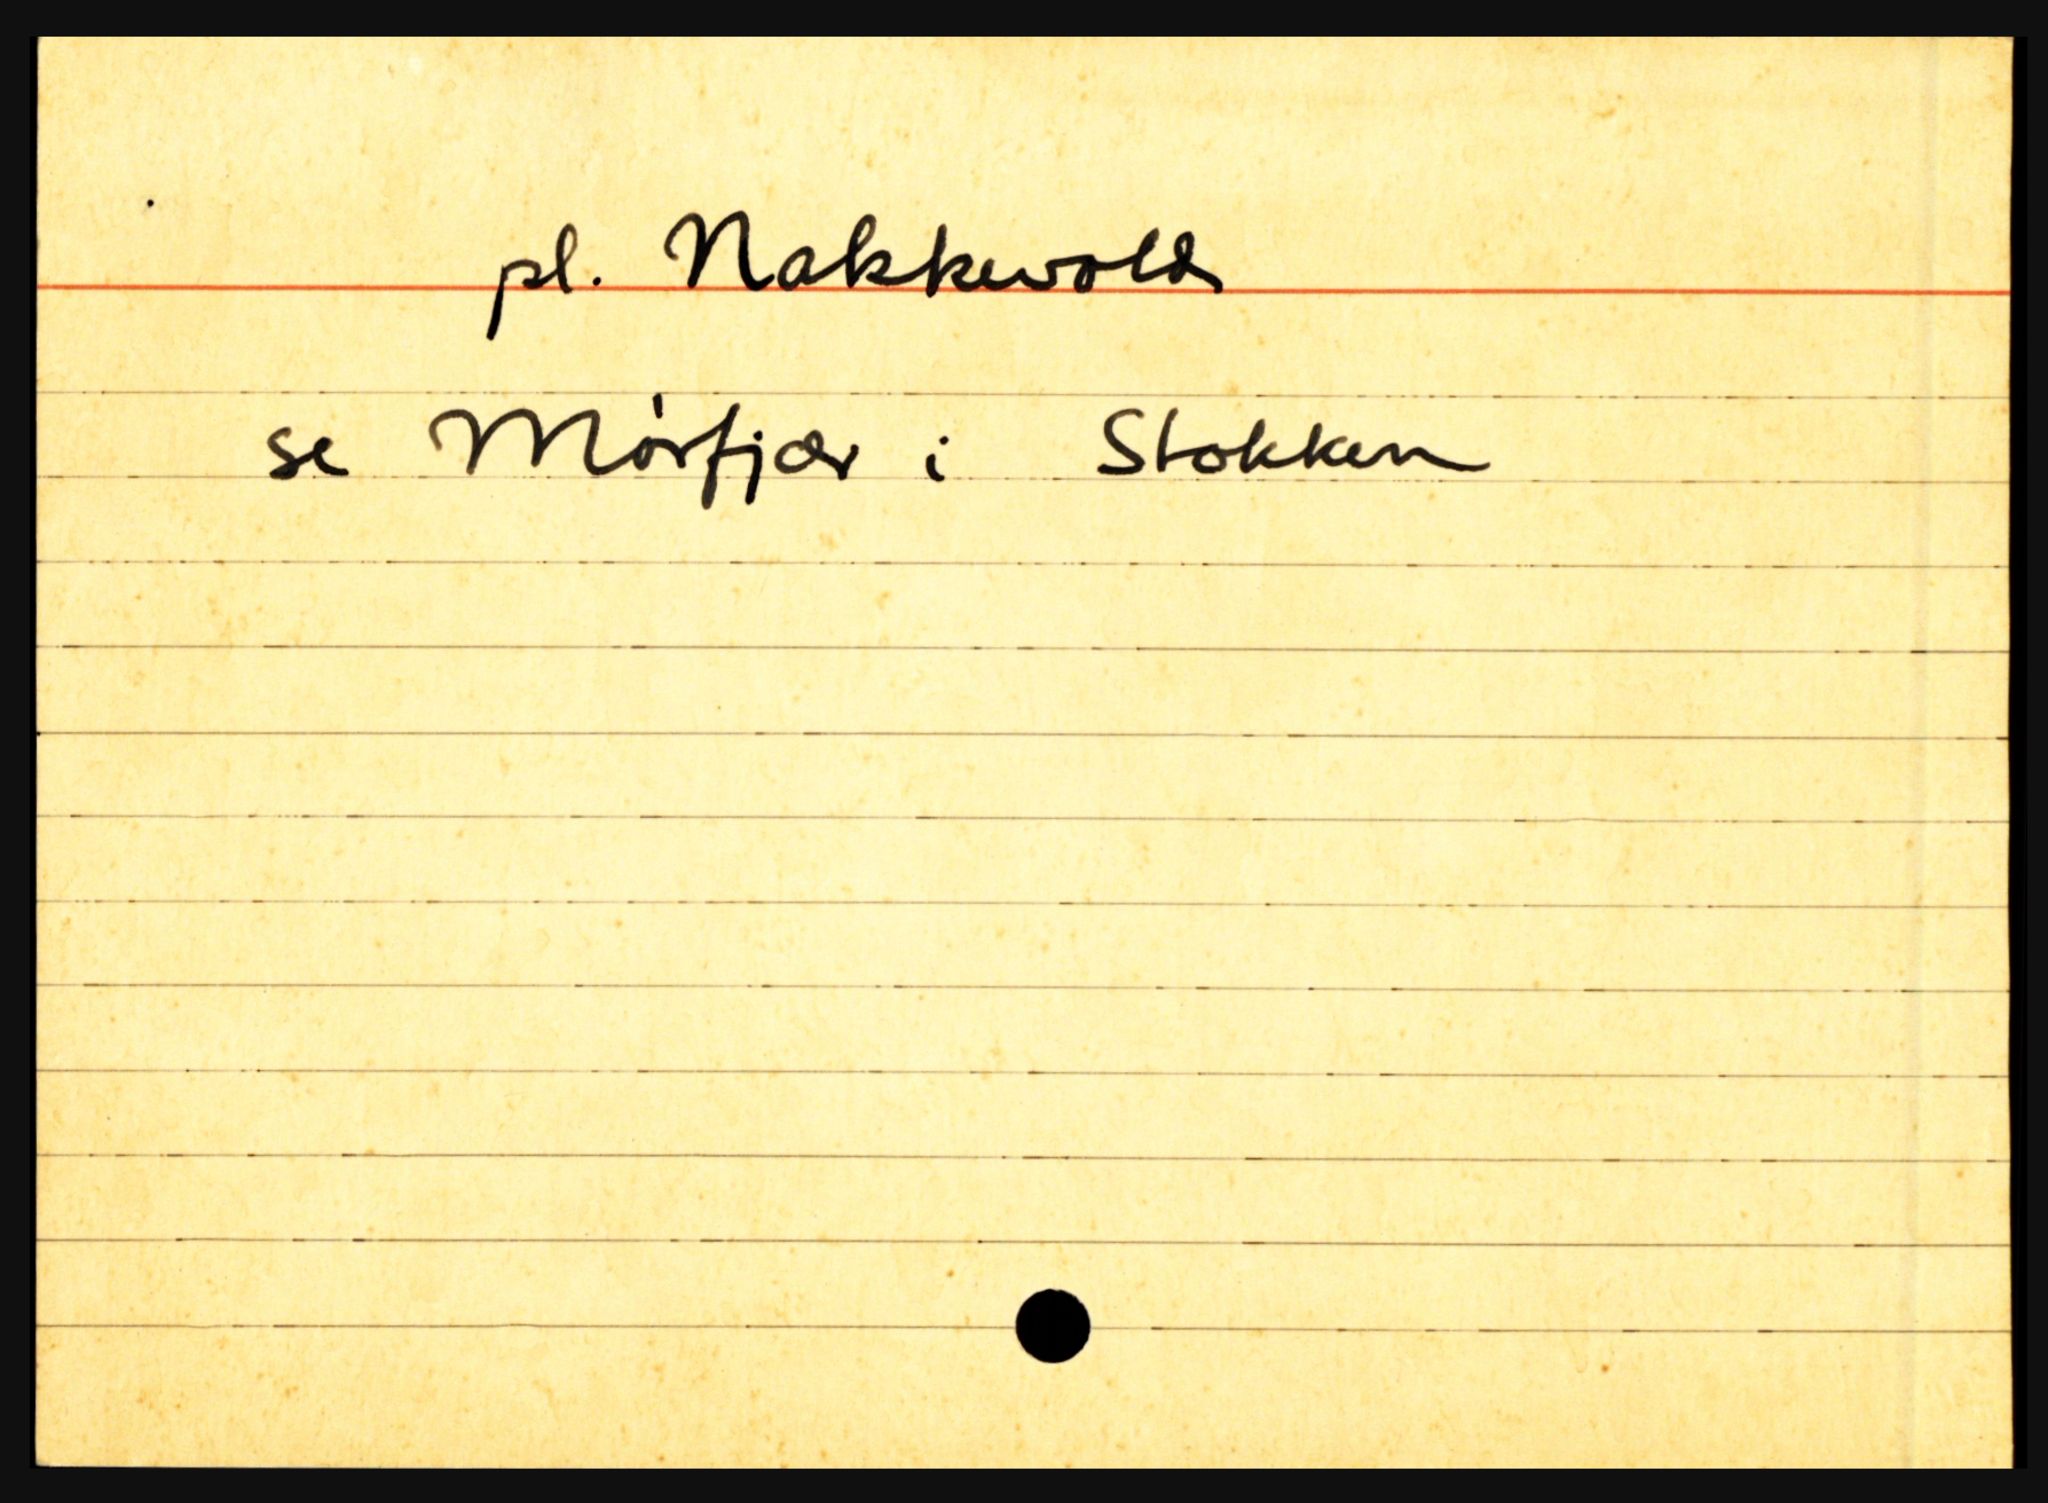 pl. Nakkevold
se Mørfjær i Stokken